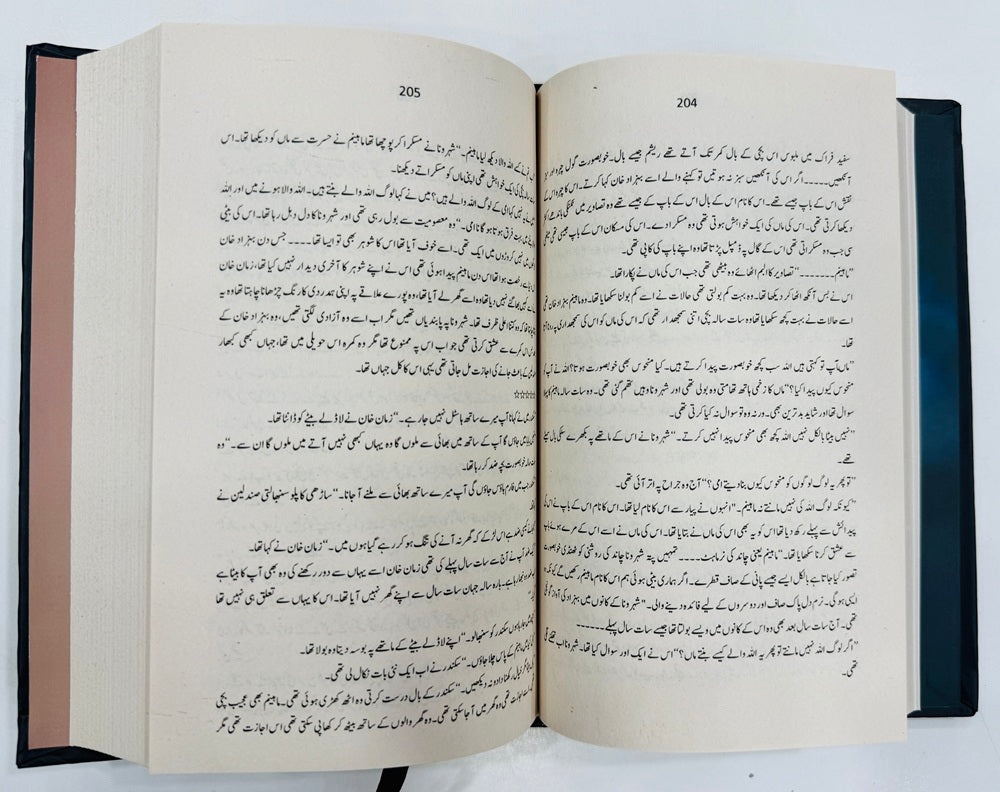 204
سفید فراک میں ملبوس اس بچی کے بال کمر تک آتے تھے ریشم جیسے بال۔خوبصورت گول چہرہ اور سبز
آنکھیں۔۔۔۔۔اگر اس کی آنکھیں سبز نہ ہوتیں تو کہنے والے اسے بہزاد خان کہا کرتے۔اس کا چہرہ اس کے
نقش اس کے باپ جیسے تھے۔اس کا نام اس کے بال اس کے باپ کے جیسے تھے وہ تصاویر میں ٹکٹکی باندھے
دیکھا کرتی تھی۔اس کی ماں کی ایک خواہش ہوتی تھی وہ مسکرا دے۔اس کی مسکان اس کے باپ جیسی تھی
سی جب وہ مسکراتی تھی اس کے گال پہ ڈمپل پڑتا تھا وہ اپنے باپ کی کاپی تھی۔
"ماہینم۔۔۔۔۔۔۔"تصاویر کا البم اٹھائے وہ بیٹھی تھی جب اس کی ماں نے پکارا تھا۔
اس نے بس آنکھ اٹھا کر دیکھا تھا۔وہ بہت کم بولتی تھی حالات نے اسے کم بولنا سکھایا تھا۔وہ ماہینم بہزاد خان تھی
اسے حالات نے بہت کچھ سکھایا تھا وہ سات سالہ بچی اتنی سمجھدار تھی کہ اس کی ماں کو اس کی سمجھداری پہ رونا آتا
تھا۔
"ماں آپ تو کہتی ہیں اللہ سب کچھ خوبصورت پیدا کرتے ہیں۔کیا منحوس بھی خوبصورت ہوتا؟اللہ نے آپ کو
منحوس کیوں پیدا کیا؟"ماں کا زخمی ہاتھ تھامتی وہ بولی تھی اور شہرونا وہیں تھم گئی تھی۔وہ سات سالہ ماہینم کا پہلا
سوال تھا اور شاید بدترین بھی۔ورنہ وہ تو سوال نہ کیا کرتی تھی۔
"نہیں بیٹا بالکل نہیں اللہ کچھ بھی منحوس پیدا نہیں کرتے۔"شہرونا نے اس کے ماتھے پہ بکھرے سلکی بال سمیٹے
تھے۔
"تو پھر یہ لوگ لوگوں کو منحوس کیوں بنا دیتے امی؟"آج وہ جراح پہ اتر آئی تھی۔
"کیونکہ لوگ اللہ کی نہیں مانتے نہ ماہینم۔"انہوں نے پیار سے اس کا نام لیا تھا۔اس کا نام اس کے باپ نے اس کی
پیدائش سے پہلے رکھ دیا تھا اس کو یہ بھی اس کی ماں نے بتایا تھا۔اس کی ماں نے اسے اس کے مرے ہوئے باپ
سے عشق کرنا سکھایا تھا۔"ماہینم یعنی چاند کی نرماہٹ۔۔۔۔۔تمہیں پتہ شہرونا چاند کی روشنی کو ٹھنڈی خوبصورت
تصور کیا جاتا ہے بالکل ایسے جیسے پانی کے صاف قطرے۔اگر ہماری بیٹی ہوئی ہم اس کا نام ماہینم رکھیں گے کیونکہ وہ
ایسی ہوگی۔نرم دل پاک صاف اور دوسروں کے لیے فائدہ دینے والی۔"شہرونا کے کانوں میں بہزاد کی آواز گونجی
تھی۔آج سات سال بعد بھی وہ اس کے کانوں میں ویسے بولتا تھا جیسے سات سال پہلے۔۔۔۔۔۔۔
"اگر لوگ اللہ نہیں مانتے تو پھر یہ اللہ والے کیسے بنتے ماں؟"اس نے ایک اور سوال کیا تھا۔شہرونا اب تھکنے لگی
تھی۔
205
کے اللہ والا دیکھ لیا ماہینم۔"شہرونا نے مسکرا کر پوچھا تھا ماہینم نے حسرت سے ماں کو دیکھا تھا۔اس
کی ایک خواہش تھی اپنی ماں کو مسکراتے دیکھنا۔
امی کے لوگ اللہ والے ہیں؟میں نے کہا لوگ اللہ والے بنتے ہیں۔اللہ والا ہونے میں اور اللہ
بہت فرق ہوتا ہوگا نا امی۔"وہ معصومیت سے بول رہی تھی اور شہرونا کا دل دہل رہا تھا۔اس کی بیٹی
نہیں کروڑوں میں ایک تھی۔اسے خوف آیا تھا اس کا شوہر بھی تو ایسا تھا۔۔۔۔جس دن بہزاد خان
رخصت ہوا تھا اس دن ماہینم پیدا ہوئی تھی اس نے اپنے شوہر کا آخری دیدار نہیں کیا تھا،زمان خان
نہیں دیا تھا وہ اسے گھر لے آیا تھا،وہ پورے علاقے پہ اپنی ہمدردی کا رنگ چڑھانا چاہتا تھا وہ یہ
کہ وہ کتنا اعلی ظرف تھا۔شہرونا پہ پابندیاں تھیں مگر اب اسے وہ آزادی لگتی تھیں،وہ بہزاد خان کے
کمرے سے عشق کرتی تھی جو اب اس پہ ممنوع تھا مگر وہ کمرہ اس حویلی میں تھا،جہاں کبھی کبھار
جانے کی اجازت مل جاتی تھی یہی اس کا کل جہاں تھا۔
☆☆☆☆☆
نے کہا نا آپ میرے ساتھ ہاسٹل نہیں جا رہے۔"زمان خان نے لاڈلے بیٹے کو ڈانٹا تھا۔
میں جاؤں گا آپ کے ساتھ میں بھائی سے ملوں گا وہ یہاں کبھی نہیں آتے میں ملوں گا ان سے۔"وہ
خوبصورت بچہ ضد کر رہا تھا۔
جب میں فارم ہاؤس جاؤں گی آپ میرے ساتھ بھائی سے ملنے آجانا۔"ساڑھی کا پلو سنبھالتی صندلین نے
اس لڑکے کی گھر نہ آنے کی تنگ ہو کر رہ گیا ہوں میں۔"زمان خان نے کہا تھا۔
آپ نے آج سے سات سال پہلے کی تھی زمان خان اسے یہاں سے دور رکھنے کی وہ بھی آپ کا بیٹا ہے
بارہ سالہ جہان سات سال سے اپنے گھر نہیں آیا تھا۔اس کا یہاں سے تعلق ہی نہیں تھا
سکندر کو سنبھالو۔"اپنے لاڈلے بیٹے کے ماتھے پہ بوسہ دیتا وہ بولا تھا۔
ماہینم کے پاس چلا جاؤں۔"سکندر نے اب ایک نئی بات نکال لی تھی۔
خیال رکھنا دادو نہ دیکھیں۔"سکندر کے بال درست کرتی وہ اٹھ کھڑی ہوئی تھی۔ماہینم بھی عجیب بچی
تھی وہ گھر میں آ جا سکتی تھی۔وہ گھر والوں کے ساتھ بیٹھ کر کھا پی سکتی تھی اس اجازت تھی مگر